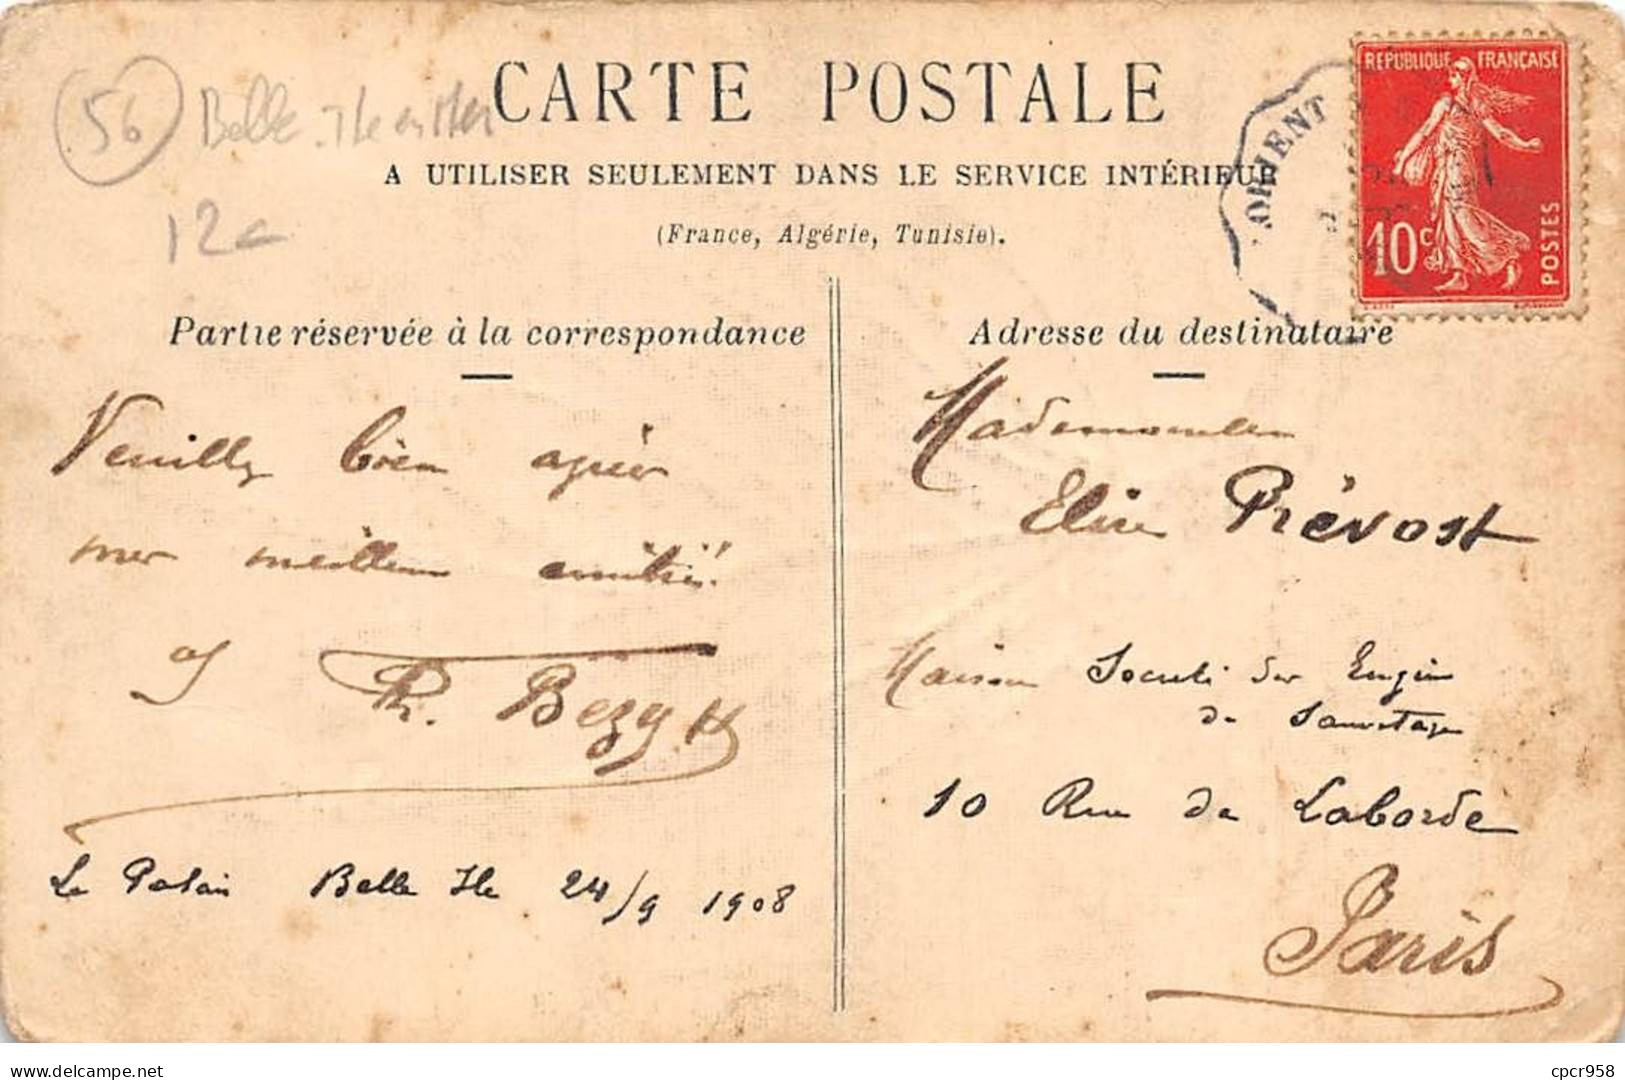 56 Belle-Ile en Mer
12c
CARTE POSTALE
A UTILISER SEULEMENT DANS LE SERVICE INTÉRIEUR
(France, Algérie, Tunisie).
LORIENT
RÉPUBLIQUE FRANÇAISE
10c
POSTES
Partie réservée à la correspondance
Veuillez bien agréer
mes meilleures amitiés
Bezy
Le Palais Belle Ile 24/9 1908
Adresse du destinataire
Mademoiselle
Elise Prévost
Maison Société des Engins
de Sauvetage
10 Rue de Laborde
Paris
delcampe.net
cpcr958